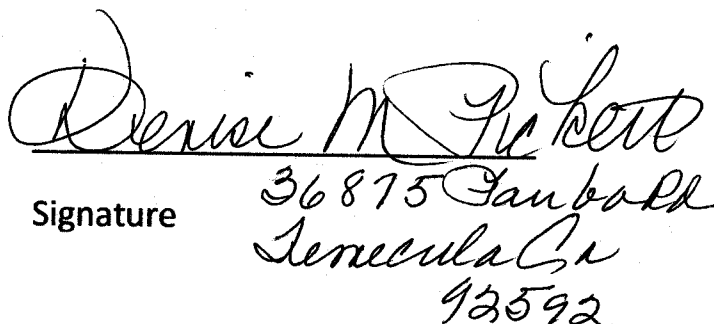 Denise M Pickett
Signature
36875 Pauba Rd
Temecula Ca
92592